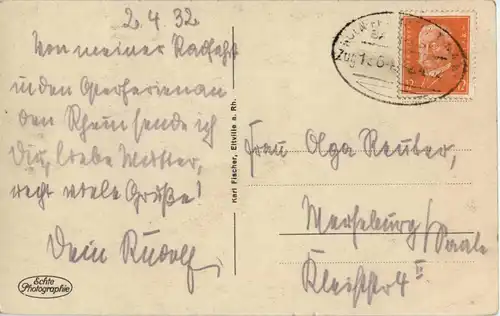 2.4.32
Von meiner Radfahrt
in den Osterferien an
den Rhein sende ich
Dir, liebe Mutter,
recht viele Grüße!
Dein Rudolf
Echte
Photographie
Karl Fischer, Eltville a. Rh.
Zug
12
Frau Olga Reuter,
Merseburg/Saale
Kleiststr 4 II